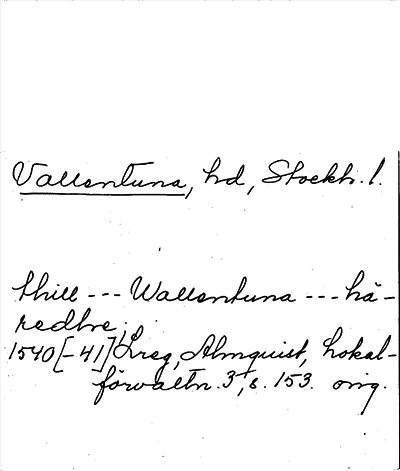 Vallentuna, hd, Stockh. l.
thill --- Wallentuna --- hä-
redhe;
1540[-41] Lreg, Almquist, Lokal-
förvaltn. 3, s. 153. orig.